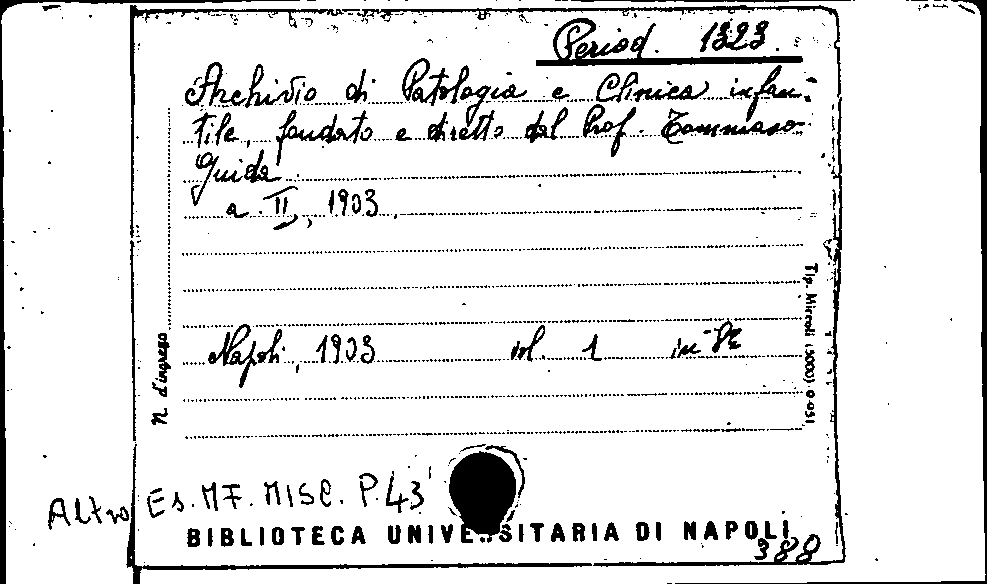 Period. 1323.
Archivio di Patologia e Clinica infan-
tile, fondato e diretto dal Prof. Tommaso
Guida
a. II, 1903.
Napoli, 1903 vol. 1 in-8º
N. d'ingresso
Tip. Mircoli (5000) 0-051
Altro Es. MF. MISC. P. 43
BIBLIOTECA UNIVERSITARIA DI NAPOLI
388